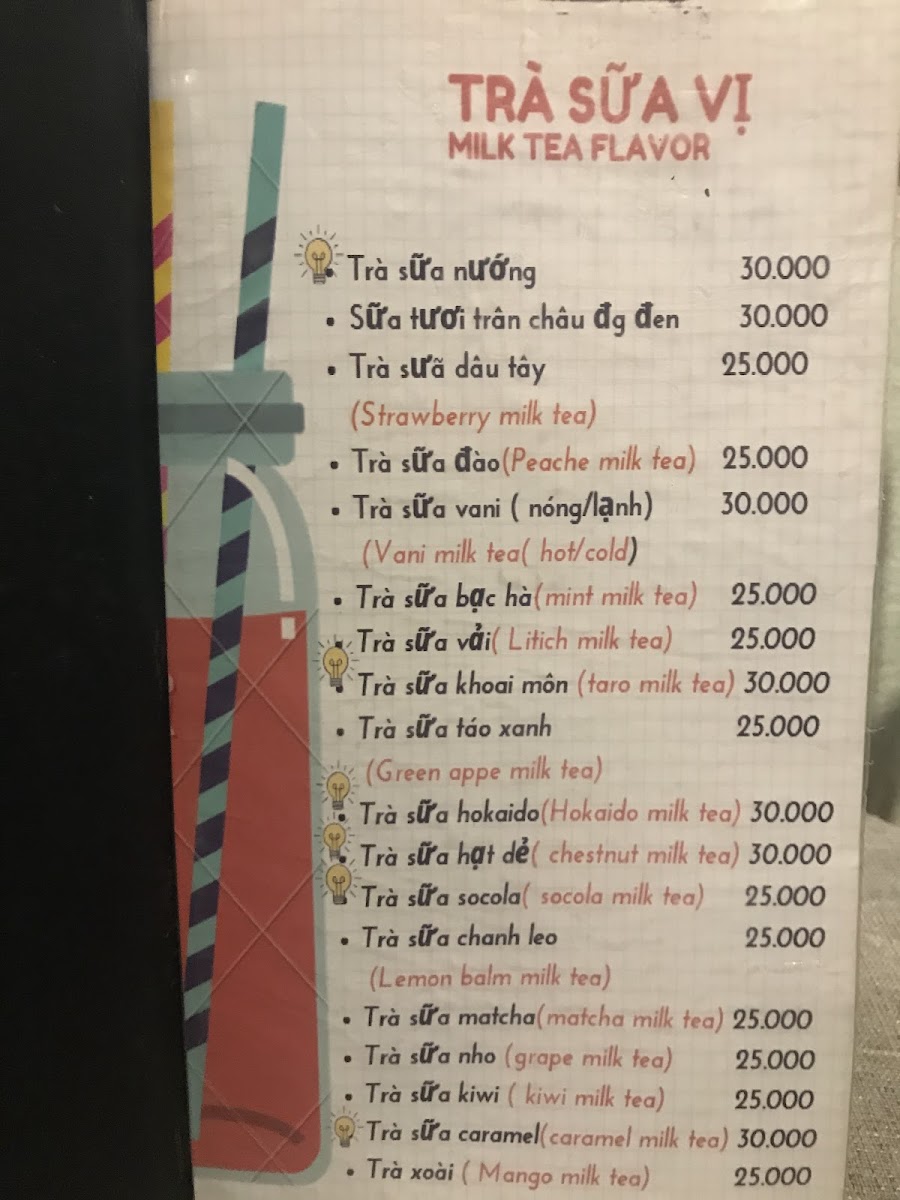 TRÀ SỮA VỊ
MILK TEA FLAVOR
• Trà sữa nướng 30.000
• Sữa tươi trân châu đg đen 30.000
• Trà sưã dâu tây 25.000
(Strawberry milk tea)
• Trà sữa đào(Peache milk tea) 25.000
• Trà sữa vani ( nóng/lạnh) 30.000
(Vani milk tea( hot/cold)
• Trà sữa bạc hà(mint milk tea) 25.000
• Trà sữa vải( Litich milk tea) 25.000
• Trà sữa khoai môn (taro milk tea) 30.000
• Trà sữa táo xanh 25.000
(Green appe milk tea)
• Trà sữa hokaido(Hokaido milk tea) 30.000
• Trà sữa hạt dẻ( chestnut milk tea) 30.000
• Trà sữa socola( socola milk tea) 25.000
• Trà sữa chanh leo 25.000
(Lemon balm milk tea)
• Trà sữa matcha(matcha milk tea) 25.000
• Trà sữa nho (grape milk tea) 25.000
• Trà sữa kiwi ( kiwi milk tea) 25.000
• Trà sữa caramel(caramel milk tea) 30.000
• Trà xoài ( Mango milk tea) 25.000